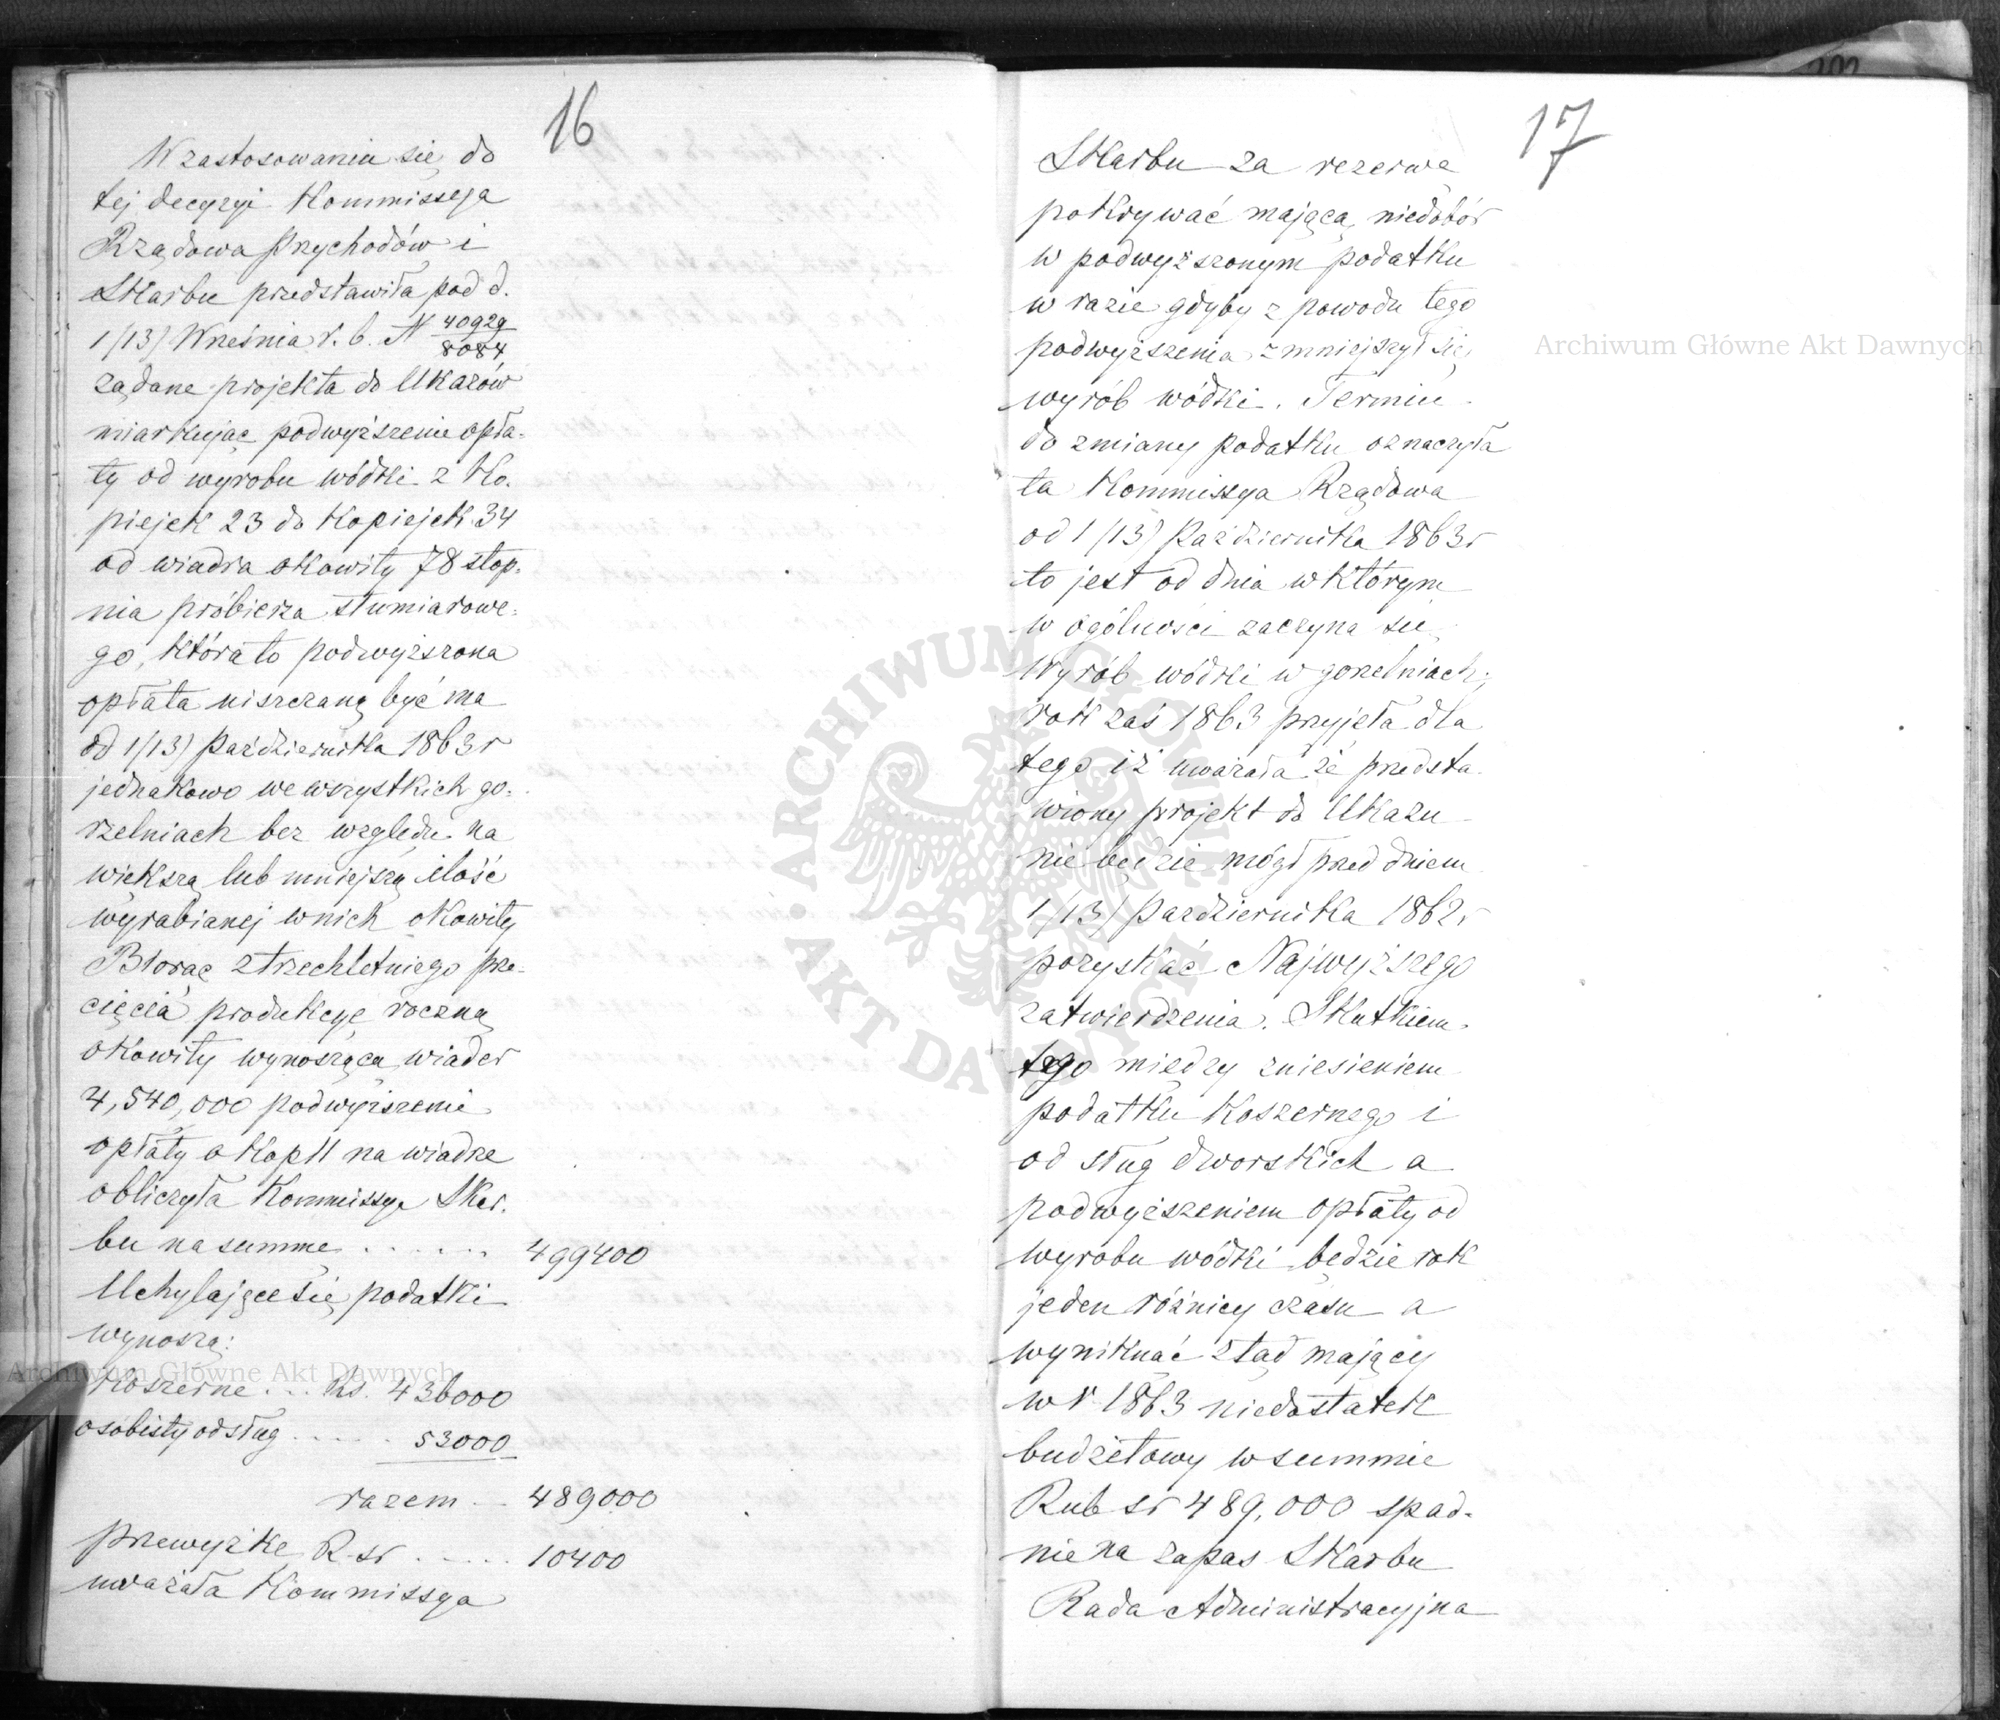 16
W zastosowaniu się do
tej decyzyi Kommissyja
Rządowa Przychodów i
Skarbu przedstawiła pod d.
1/13) Września r. b. N 40929/8084
żądane projekta do Ukazów
miarkując podwyższenie opła-
ty od wyrobu wódki z Ko-
piejek 23 do Kopiejek 34
od wiadra okowity 78 stop-
nia próbierza stumiarowe-
go, która to podwyższona
opłata uiszczaną być ma
od 1/13) Października 1863 r
jednakowo we wszystkich go-
rzelniach bez względu na
większą lub mniejszą ilość
wyrabianej w nich okowity
Biorąc z trzechletniego prze-
cięcia produkcyę roczną
okowity wynoszącą wiader
4,540,000 podwyższenie
opłaty o Kop 11 na wiadrze
obliczyła Kommissya Skar-
bu na summę . . . . . . 499400
Uchylające się podatki
wynoszą:
Koszerne . . . Rs. 436000
osobisty od sług . . . . . 53000
razem . . 489000
przewyżkę R. sr . . . . . 10400
uważała Kommissya
17
Skarbu za rezerwę
pokrywać mającą niedobór
w podwyższonym podatku
w razie gdyby z powodu tego
podwyższenia zmniejszył się
wyrób wódki. Termin
do zmiany podatku oznaczyła
ta Kommissya Rządowa
od 1/13) Października 1863 r
to jest od dnia w którym
w ogólności zaczyna się
wyrób wódki w gorzelniach;
rok zaś 1863 przyjęła dla
tego iż uważała że przedsta-
wiony projekt do Ukazu
nie będzie mógł przed dniem
1/13) Października 1862 r
pozyskać Najwyższego
zatwierdzenia. Skutkiem
tego między zniesieniem
podatku Koszernego i
od sług dworskich a
podwyższeniem opłaty od
wyrobu wódki będzie rok
jeden różnicy czasu a
wyniknąć ztąd mający
w r 1863 niedostatek
budżetowy w summie
Rub sr 489,000 spad-
nie na zapas Skarbu
Rada Administracyjna
Archiwum Główne Akt Dawnych
Archiwum Główne Akt Dawnych
ARCHIWUM GŁÓWNE • AKT DAWNYCH •